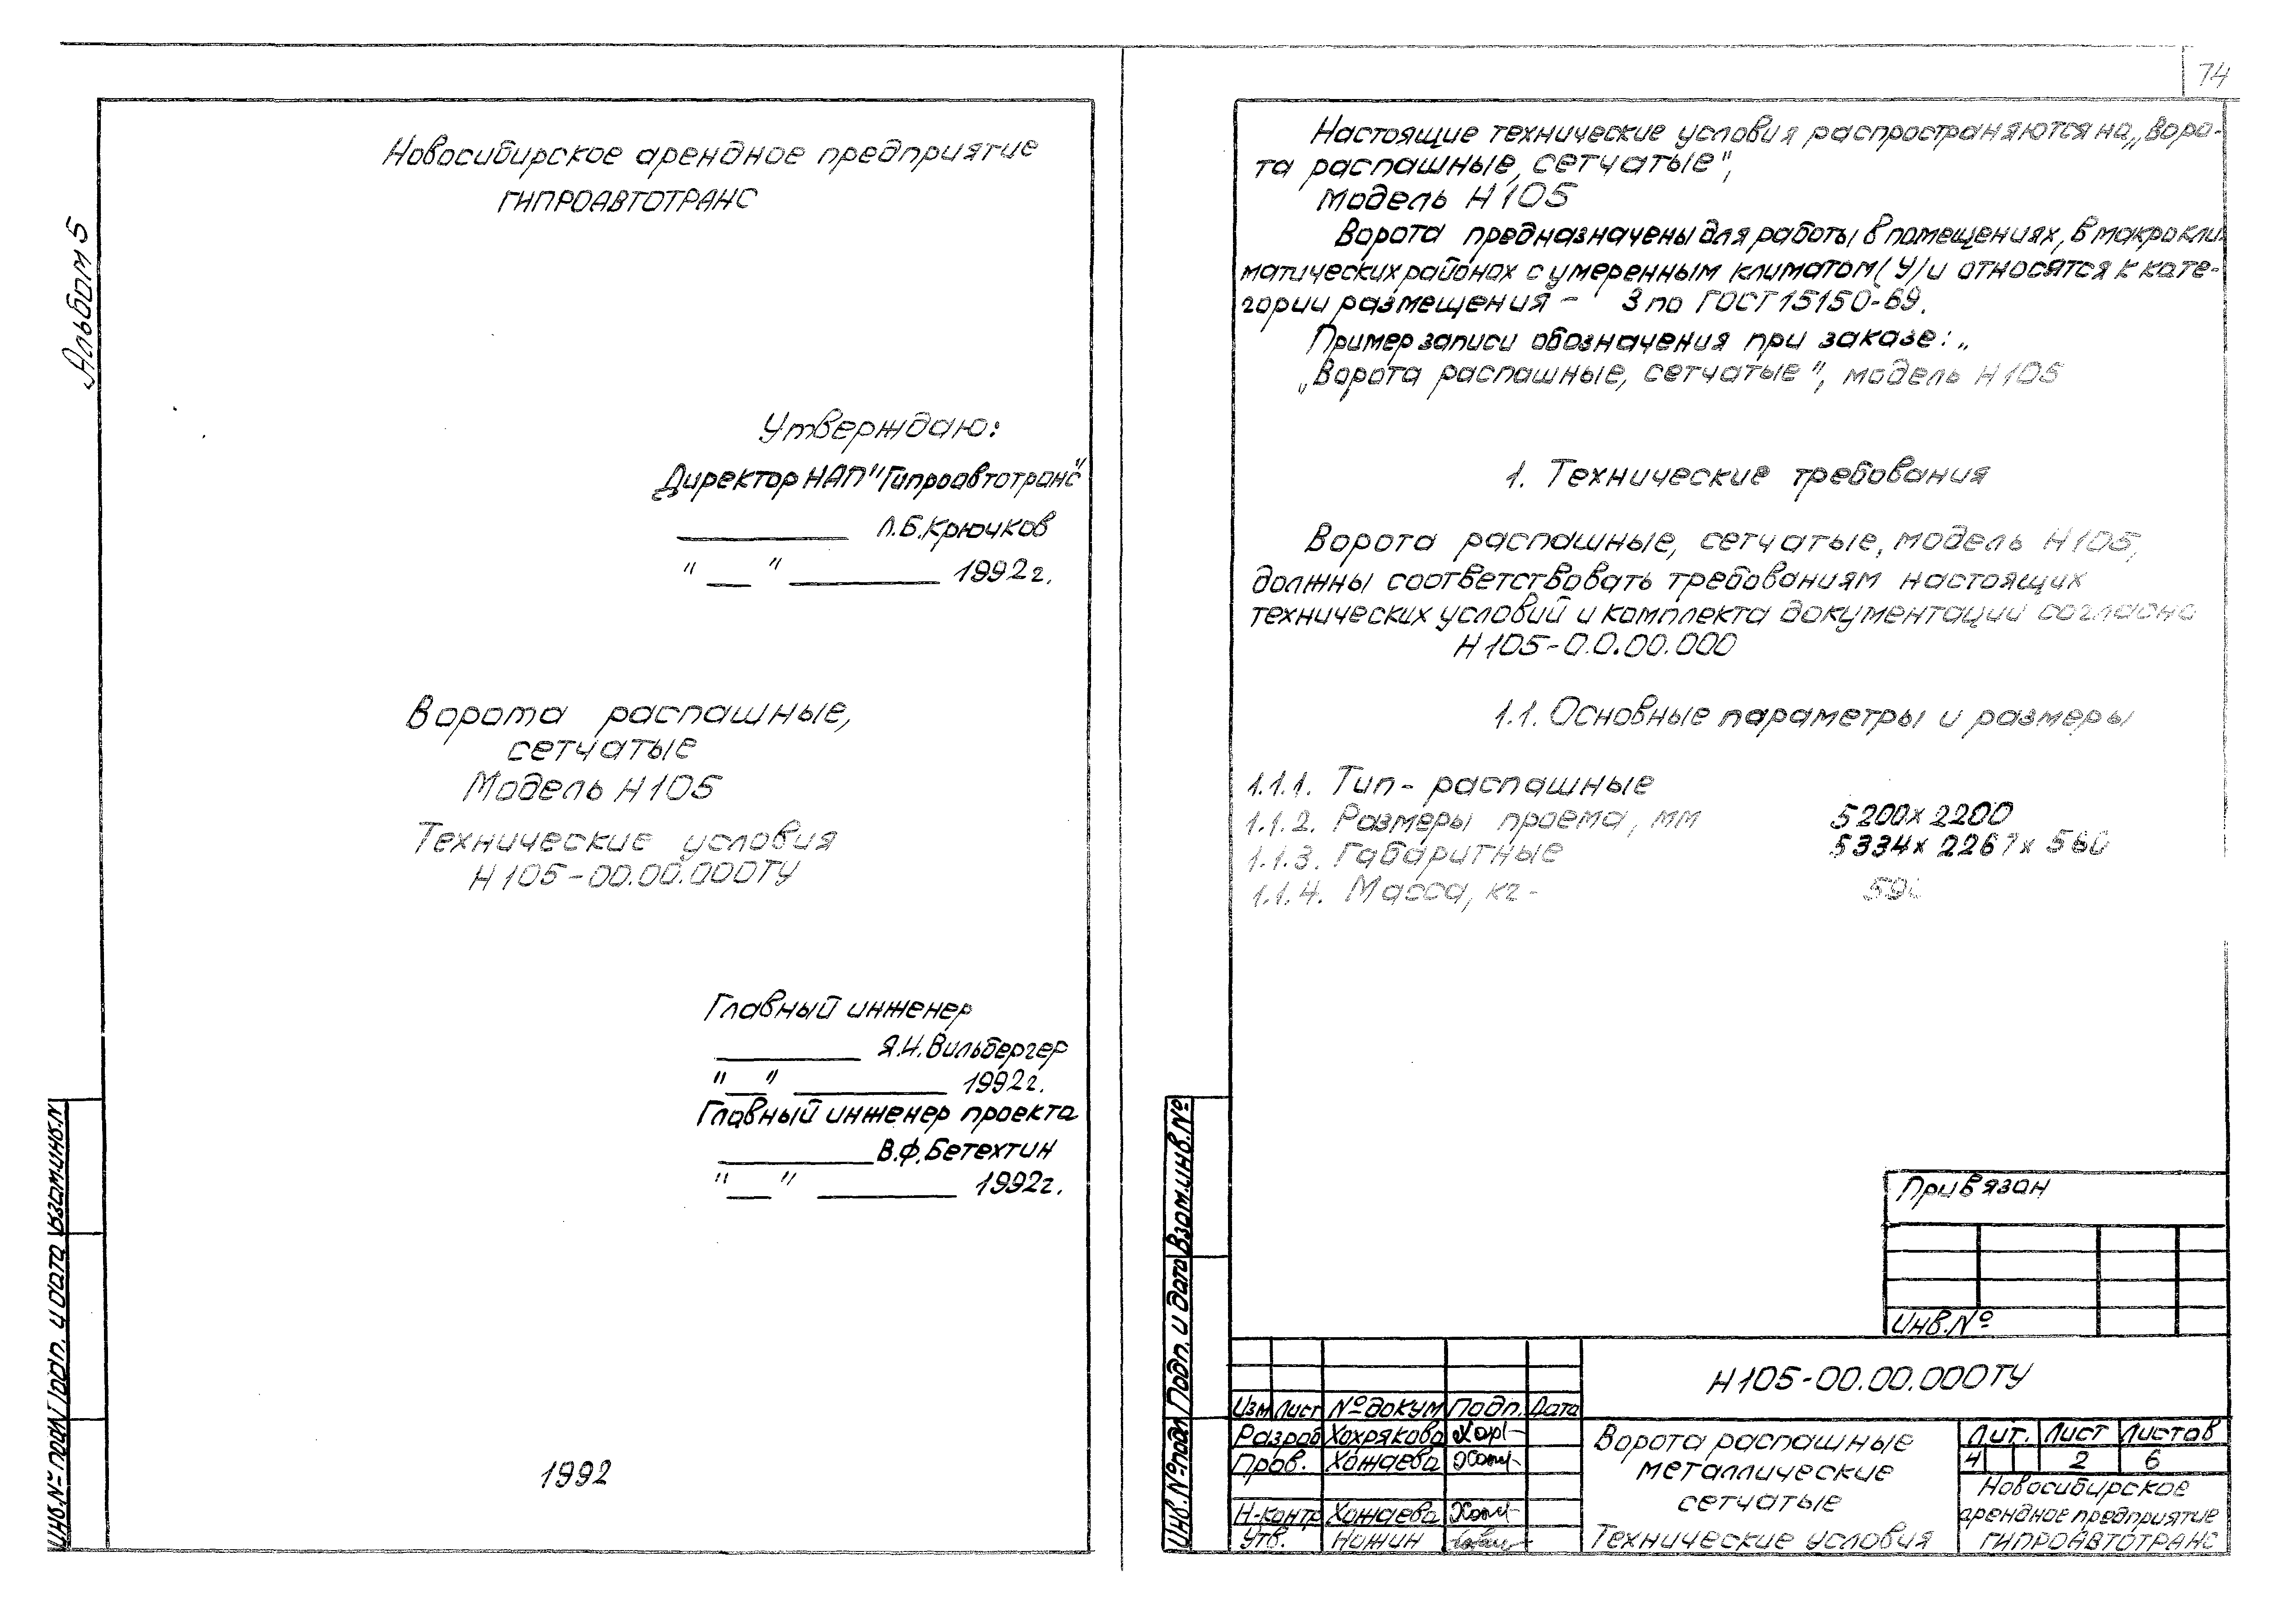 Альбом 5
Новосибирское арендное предприятие
ГИПРОАВТОТРАНС
Утверждаю:
Директор НАП "Гипроавтотранс"
Л.Б.Крючков
" __ " ______ 1992г.
Ворота распашные,
сетчатые
Модель Н105
Технические условия
Н105-00.00.000ТУ
Главный инженер
Я.И.Вильбергер
" __ " ______ 1992г.
Главный инженер проекта
В.Ф.Бетехтин
" __ " ______ 1992г.
1992
Инв.№ подл Подп. и дата Взам.инв.N
74
Настоящие технические условия распространяются на „Воро-
та распашные, сетчатые",
модель Н105
Ворота предназначены для работы в помещениях, в макрокли-
матических районах с умеренным климатом (У/ и относятся к кате-
гории размещения - 3 по ГОСТ 15150-69.
Пример записи обозначения при заказе: „
„Ворота распашные, сетчатые", модель Н105
1. Технические требования
Ворота распашные, сетчатые, модель Н105,
должны соответствовать требованиям настоящих
технических условий и комплекта документации согласно
Н105-0.0.00.000
1.1. Основные параметры и размеры
1.1.1. Тип - распашные
1.1.2. Размеры проема, мм 5200х2200
1.1.3. Габаритные 5334х2267х560
1.1.4. Масса, кг -
Привязан
Инв.№
Инв.№ подл Подп. и дата Взам.инв.№
Н105-00.00.000ТУ
Изм Лист №докум Подп. Дата
Разраб Хохрякова
Пров. Хожаева
Н-контр Хожаева
Утв. Ножин
Ворота распашные
металлические
сетчатые
Технические условия
Лит. Лист Листов
И 2 6
Новосибирское
арендное предприятие
ГИПРОАВТОТРАНС